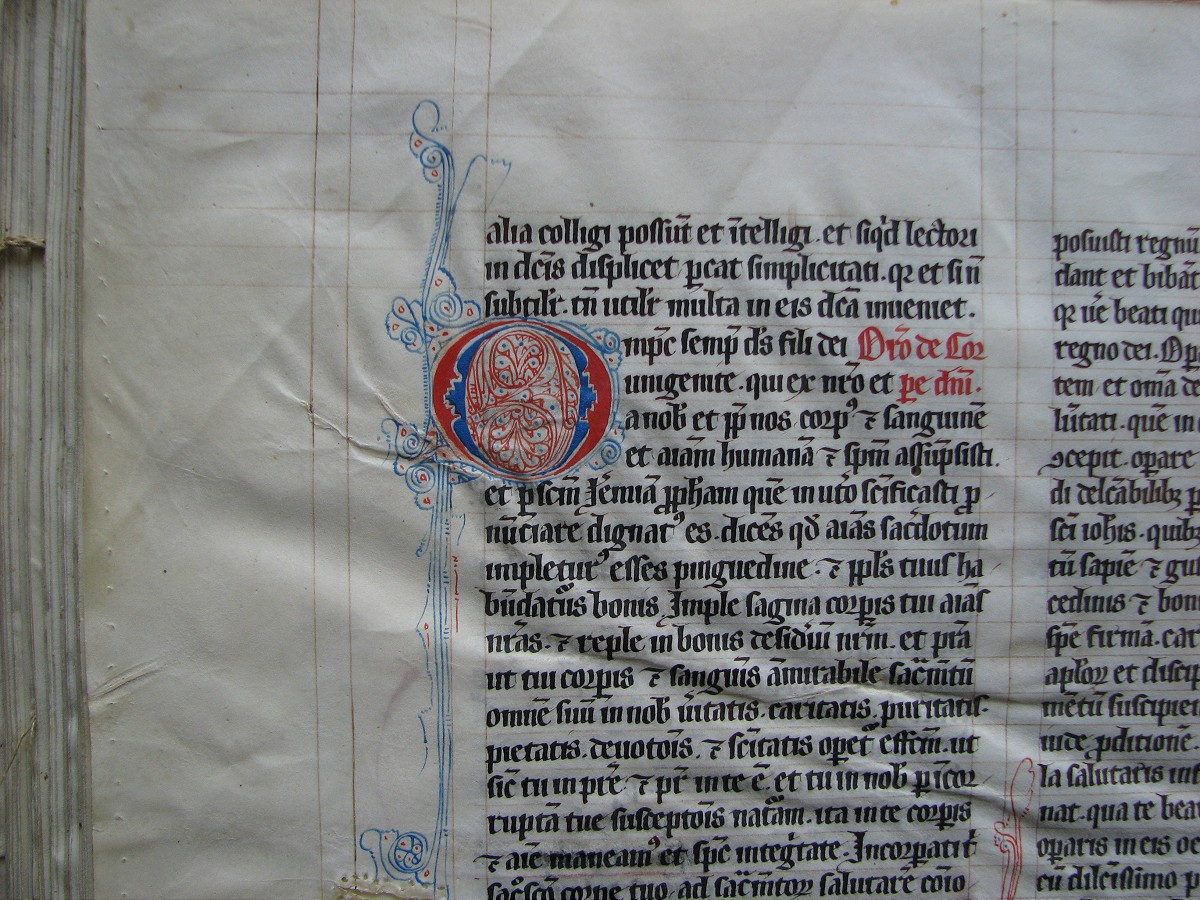 alia colligi possūt et ītelligi. et siq'd lectori
in dc̄is displicet p̲cat simplicitati. qr et si nō
subtilit̄. tn̄ utilit̄ multa in eis dc̄a inueniet.
Omp̄c semp̄ dn̄s fili dei Orō de Cor
unigenite. qui ex nr̄o et pe dn̄i.
a nob̄ et pp̄ nos corpꝰ ⁊ sanguinē
et aīam humanā ⁊ sp̄m assūpsisti.
et p̲ sc̄m Jēmiā ꝓpham quē in ut̄o sc̄ificasti p̲
nūciare dignatꝰ es. dicēs qđ aīas sac̄dotum
impleturꝰ esses pinguedine. ⁊ pp̄ls tuus ha
būdatiꝰ bonis. Imple sagina corp̲is tui aīas
nr̄as. ⁊ reple in bonis desidiū nrm̄. et p̄ra
ut tui corp̲is ⁊ sanguis āmirabile sac̄mtū
omne suū in nob̄ ūitatis. caritatis. puritatis.
pietatis. deuotōis. ⁊ sc̄itatis opet̄ effcm̄. ut
sic̄ tu in pr̄e. ⁊ pr̄ in te ē. et tu in nob̄ p̲ icor
ruptā tue susceptōis natām. ita in te corp̲is
⁊ aīe maneamꝰ et sp̄c integ̓tate. Incorp̲ati t̄
carne tuo. ad sac̄mtoꝝ salutarē
posuisti regnū
dant et bibāt
qr ūe beati qui
regno dei.
tem et omā de
quē in
ꝯcepit. opare
di delc̄abilibꝫ p̲
sc̄i ioh̄is. quibꝫ
tū sapīe ⁊ gu
⁊ bon
sp̄e firmā. car
ap̄loꝝ et discip
mētū suscipiet
p̲ditionē.
la salutaris
nat. qua te bea
op̲aris in eis
cū dilc̄issimo p